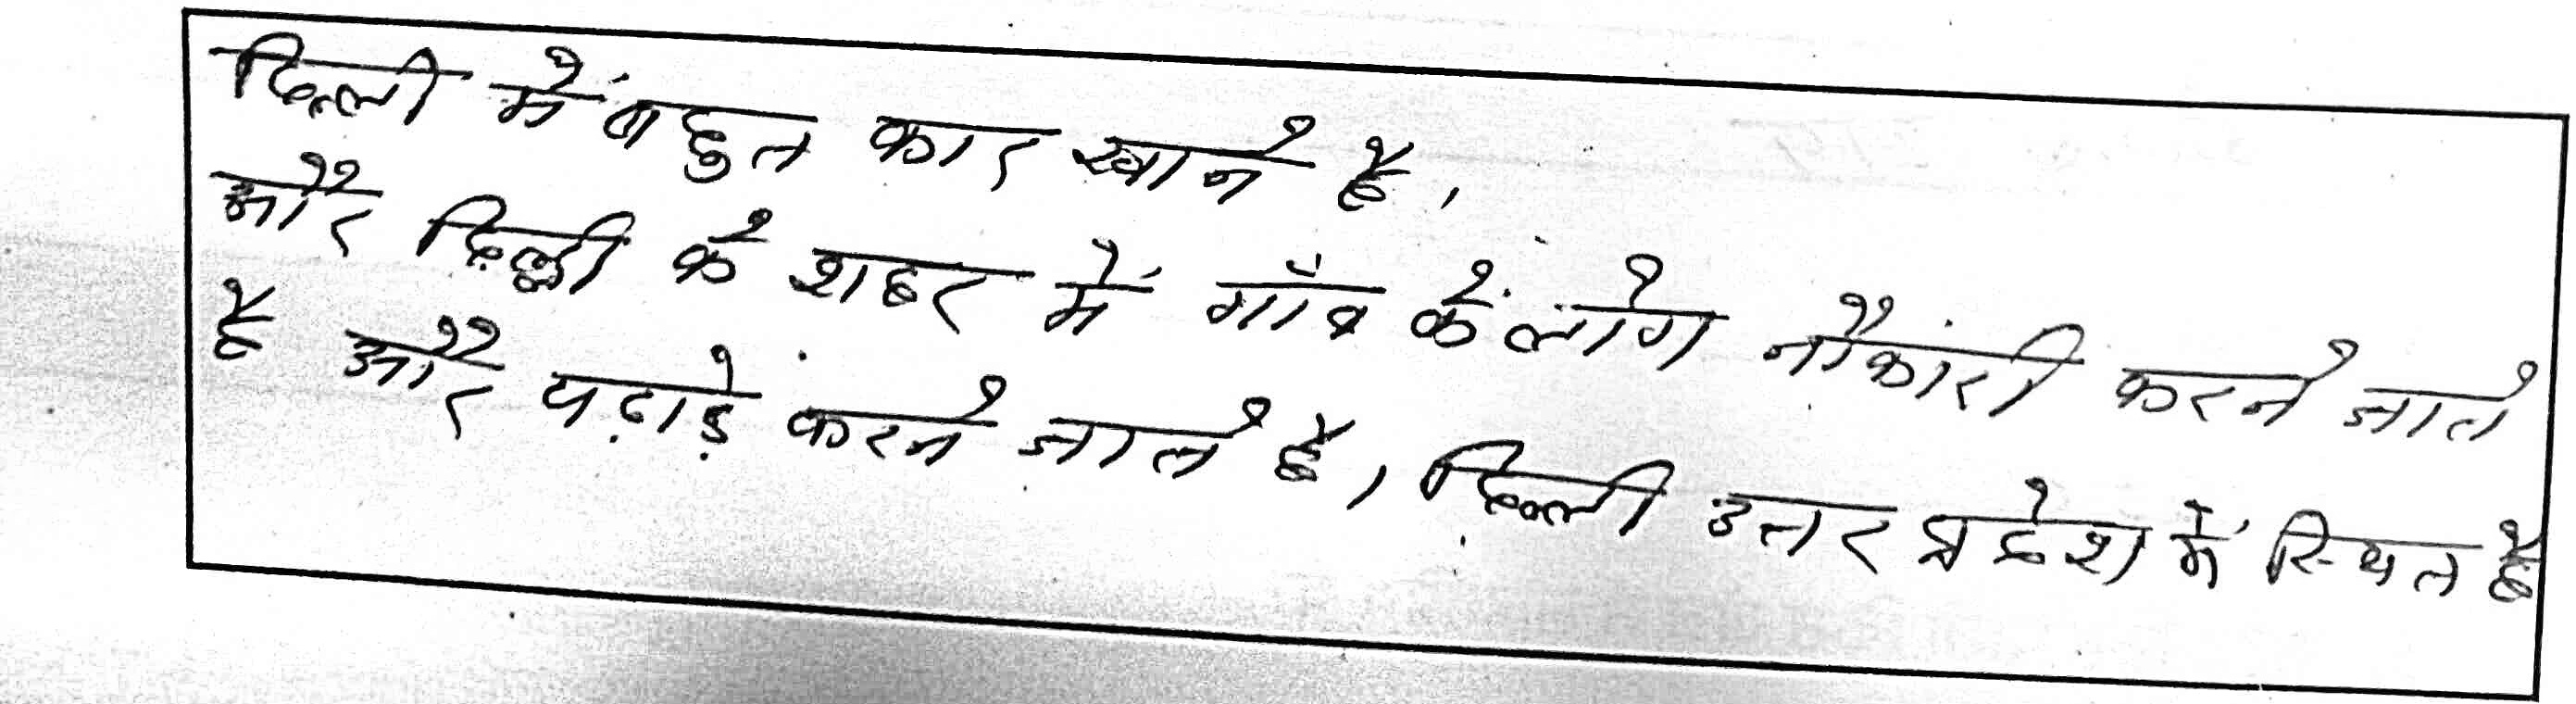 दिल्ली में बहुत कार खाने है,
और दिल्ली के शहर में गाँव के लोग नौकारी करने जाते
है और पढ़ाड़े करने जाते है, दिल्ली उत्तर प्रदेश में स्थित है